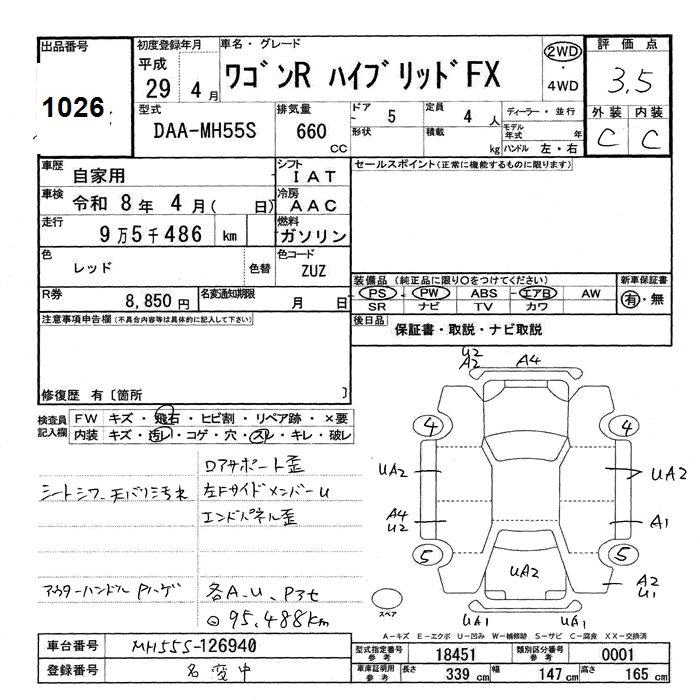 出品番号
1026
初度登録年月
平成
29 4 月
車名・グレード
ワゴンR ハイブリッドFX
2WD
・
4WD
評価点
3.5
外装 内装
C C
型式
DAA-MH55S
排気量
660
CC
ドア
5
形状
定員
4 人
積載
kg
ディーラー・並行
モデル年式 年
ハンドル 左・右
車歴
自家用
シフト
IAT
車検
令和 8 年 4 月( 日)
冷房
AAC
走行
9 万 5 千 486 km
燃料
ガソリン
色
レッド
色替
色コード
ZUZ
R券
8,850 円
名変通知期限
月 日
セールスポイント(正常に機能するものに限ります)
装備品 (純正品に限り○をつけてください)
PS PW ABS エアB AW
SR ナビ TV カワ
新車保証書
有・無
後日品
保証書・取説・ナビ取説
注意事項申告欄(不具合内容等は具体的に記入して下さい)
修復歴 有〔箇所 〕
検査員
記入欄
FW キズ・飛石・ヒビ割・リペア跡・×要
内装 キズ・汚レ・コゲ・穴・スレ・キレ・破レ
ロアサポート歪
シートシワ 天バリ汚れ
左Fサイドメンバーu
エンドパネル歪
アウターハンドル Pハゲ
各A.U、P3セ
◎95,488km
U2
A2
A4
4
4
UA2
UA2
A4
U2
A1
5
5
UA2
A2
U1
UA1
UA1
スペア
A-キズ E-エクボ U-凹み W-補修跡 S-サビ C-腐食 XX-交換済
車台番号
MH55S-126940
登録番号
名変中
型式指定番号
参考
18451
類別区分番号
参考
0001
車庫証明用
参考
長さ 339 cm 幅 147 cm 高さ 165 cm